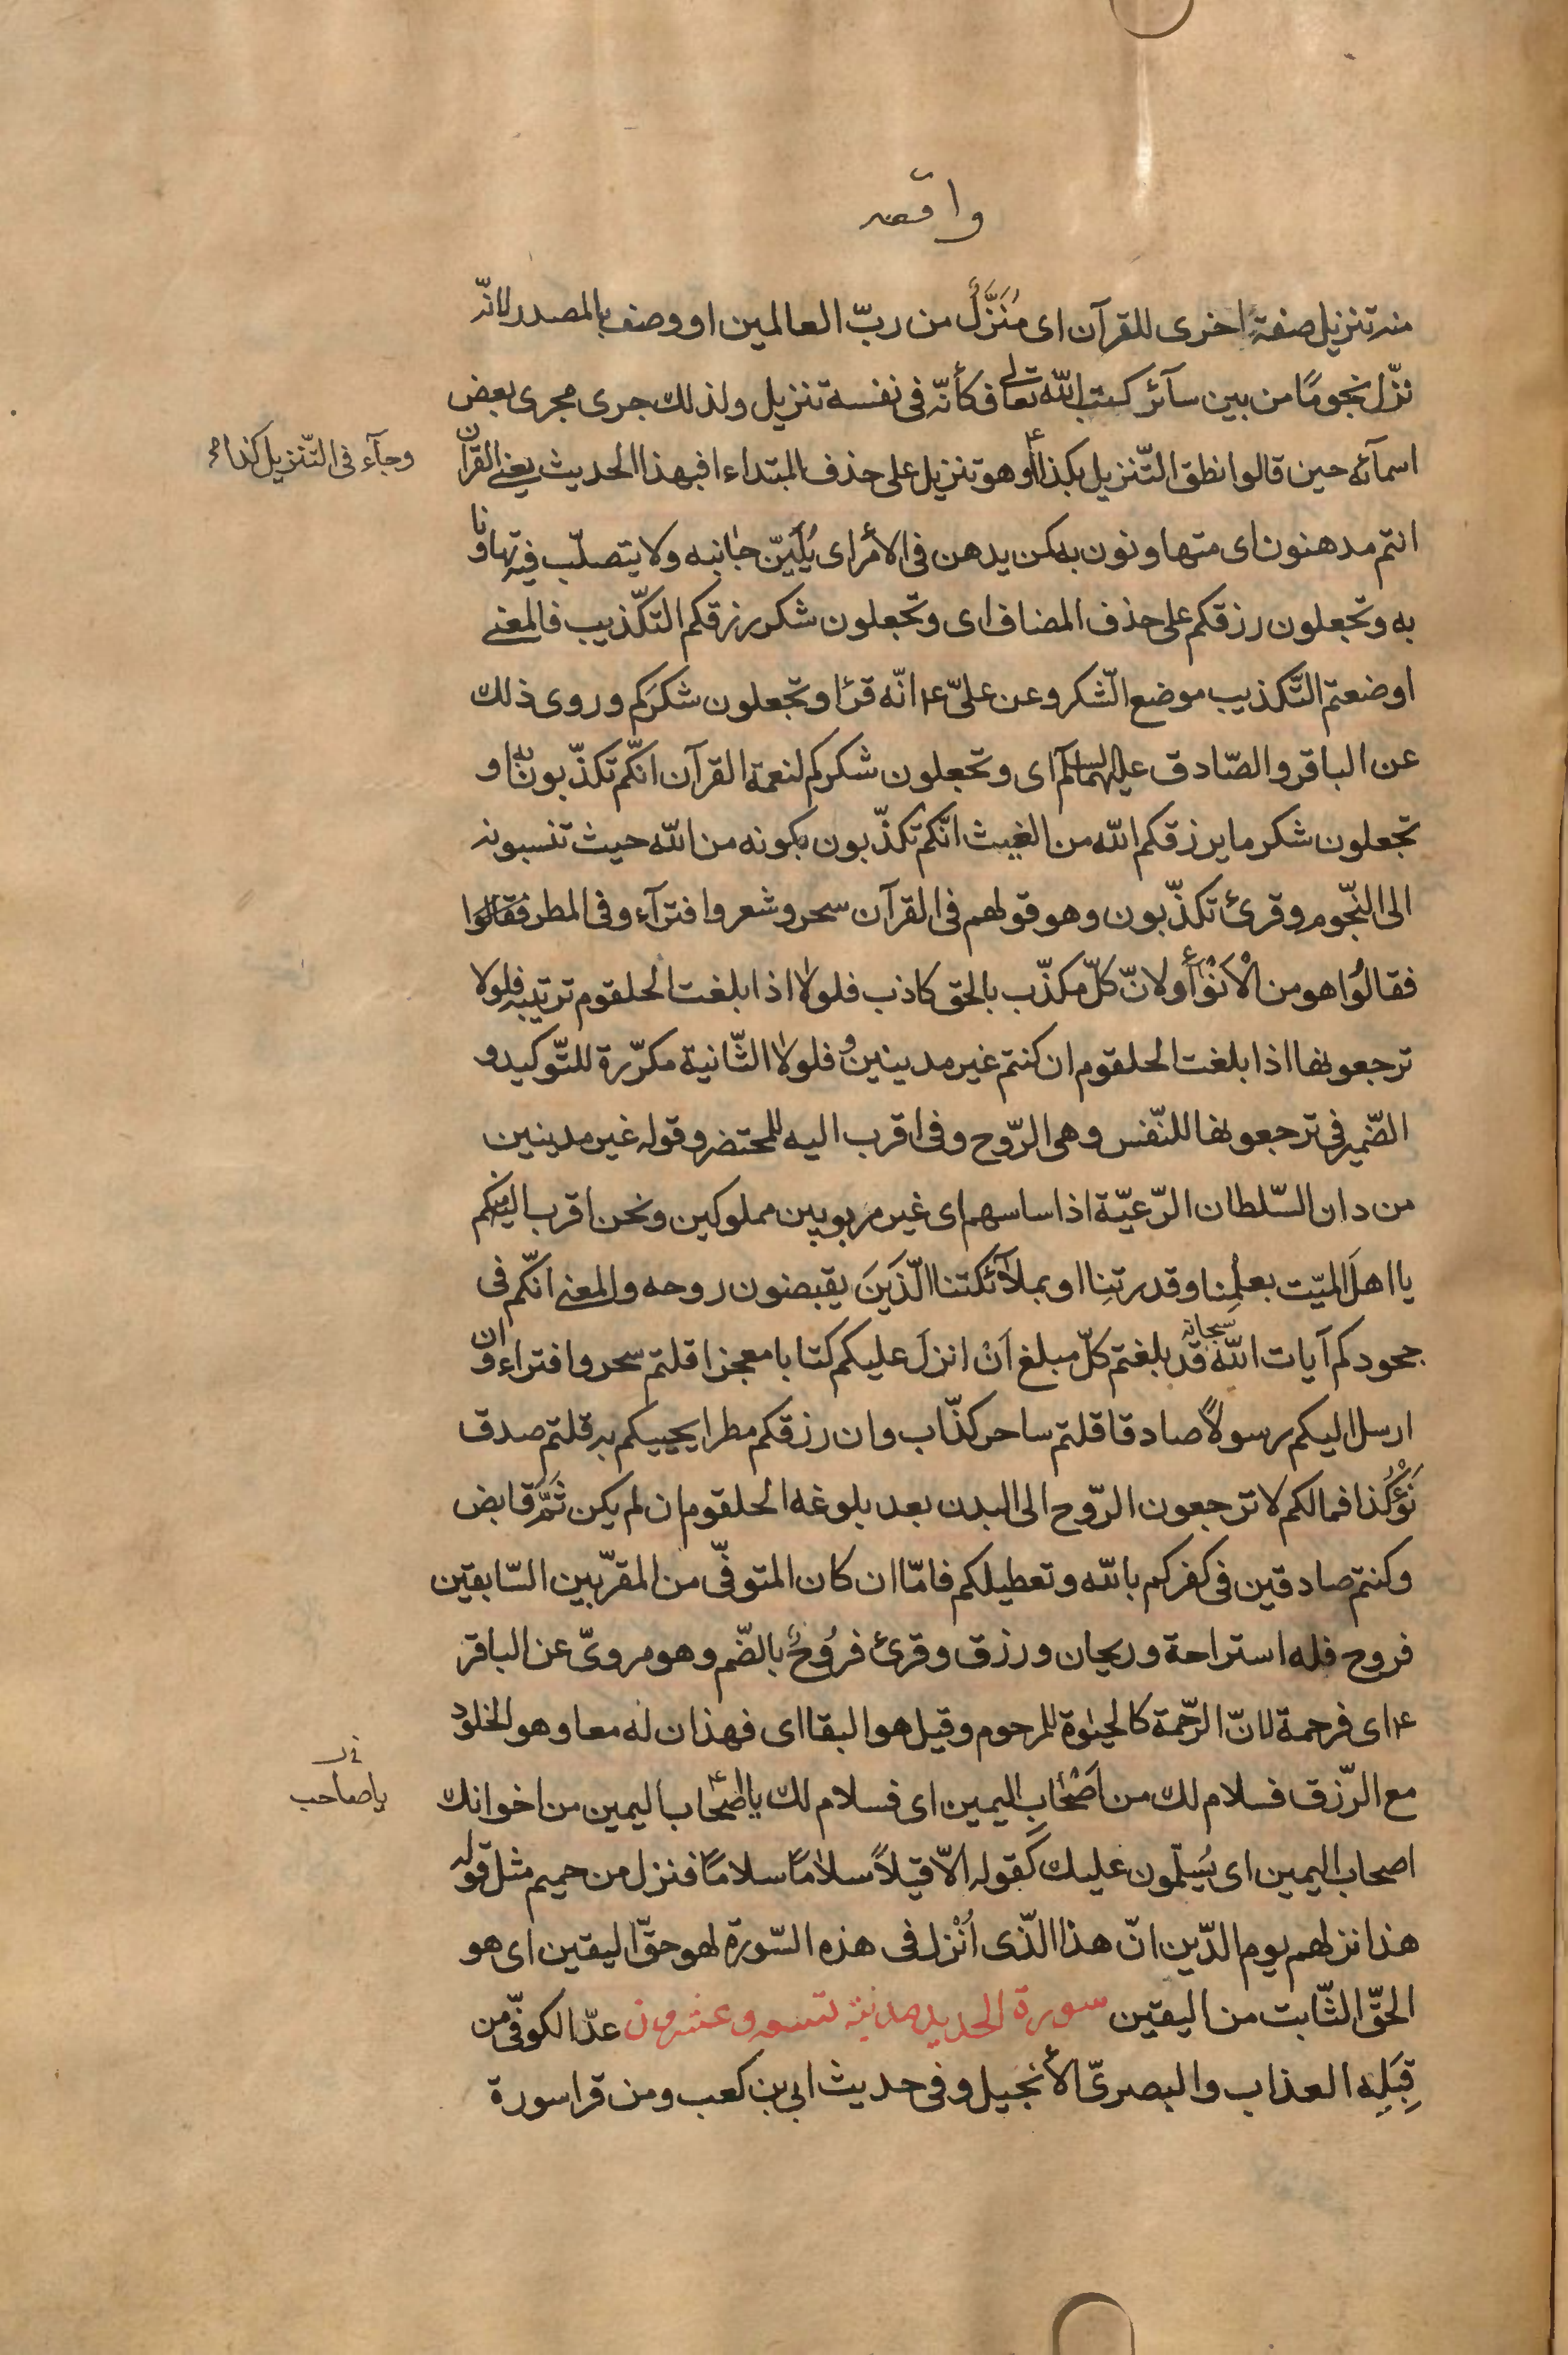 واقعه
منه تنزيل صفة اخرى للقرآن اى مُنَزَّلٌ من ربّ العالمين او وصف بالمصدر لانّه
نزّل نجومًا من بين سآئر كتب الله تعالى فكأنّه فى نفسه تنزيل ولذلك جرى مجرى بعض
اسمآئه حين قالوا نطق التّنزيل بكذا أو هو تنزيل على حذف المبتداء افبهذا الحديث يعنى القرآن
وجآء فى التّنزيل كذا
انتم مدهنون اى متهاونون به كمن يدهن فى الأمر اى يُلَيِّن جانبه ولا يتصلّب فيه تهاونا
به وتجعلون رزقكم على حذف المضاف اى وتجعلون شكر رزقكم التّكذيب فالمعنى
اوضعتم التّكذيب موضع الشّكر وعن علىّ ع انّه قرأ وتجعلون شكرَكم وروى ذلك
عن الباقر والصّادق عليهما السلم اى وتجعلون شكركم لنعمة القرآن انّكم تكذّبون به او
تجعلون شكر ما يرزقكم الله من الغيث انّكم تكذّبون بكونه من الله حيث تنسبونه
الى النّجوم وقرئ تكذّبون وهو قولهم فى القرآن سحر وشعر وافترآء وفى المطر فقالوا
فقالُوا هو من الْاَنْوآء أو لانّ كلّ مكذّب بالحق كاذب فلولا اذا بلغت الحلقوم ترتيبه فلولا
ترجعونها اذا بلغت الحلقوم ان كنتم غير مدينين و فلولا الثّانية مكرّرة للتّوكيد و
الضّمير فى ترجعونها للنّفس وهى الرّوح وفى اقرب اليه للمحتضر وقوله غير مدينين
من دان السّلطان الرّعيّة اذا ساسهم اى غير مربوبين مملوكين ونحن اقرب اليه منكم
يا اهلَ الميّت بعلمِنا وقدرتِنا او بملآئكتنا الّذَينَ يقبضون روحه والمعنى انّكم فى
جحودكم آيات الله سبحانه قد بلغتم كلّ مبلغ اَنْ انزلَ عليكم كتابا معجزا قلتم سحر وافتراء وان
ارسل اليكم رسولاً صادقا قلتم ساحر كذّاب وان رزقكم مطرا يحييكم به قلتم صدق
نَوْءُ كذا فمالكم لا ترجعون الرّوح الى البدن بعد بلوغه الحلقوم ان لم يكن ثَمَّ قابض
وكنتم صادقين فى كفركم بالله وتعطيلكم فامّا ان كان المتوفّى من المقرّبين السّابقين
فروح فله استراحة وريحان ورزق وقرئ فرُوحٌ بالضّم وهو مروىّ عن الباقر
ع اى فرحمة لانّ الرّحمة كالحيوة للمرحوم وقيل هو البقا اى فهذان له معا وهو الخلود
مع الرّزق فسلام لك من اَصْحَابِ اليمين اى فسلام لك يا اصحاب اليمين من اخوانك
يا صاحب
اصحاب اليمين اى يُسَلّمون عليك كَقوله الاّ قيلاً سلامًا سلامًا فنزل من حميم مثل قوله
هذا نزلهم يوم الدّين انّ هذا الّذى اُنْزل فى هذه السّورة لهو حقّ اليقين اى هو
الحقّ الثّابت من اليقين سورة الحديد مدنيّة تسع وعشرون عدّ الكوفّى من
قِبَلِه العذاب والبصرىّ الأنجيل وفى حديث ابى بن كعب ومن قرا سورة